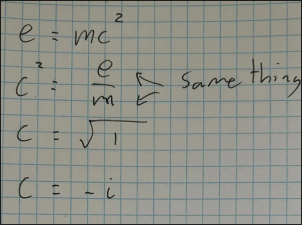 e = mc²
c² = e/m same thing
c = √1
c = -i